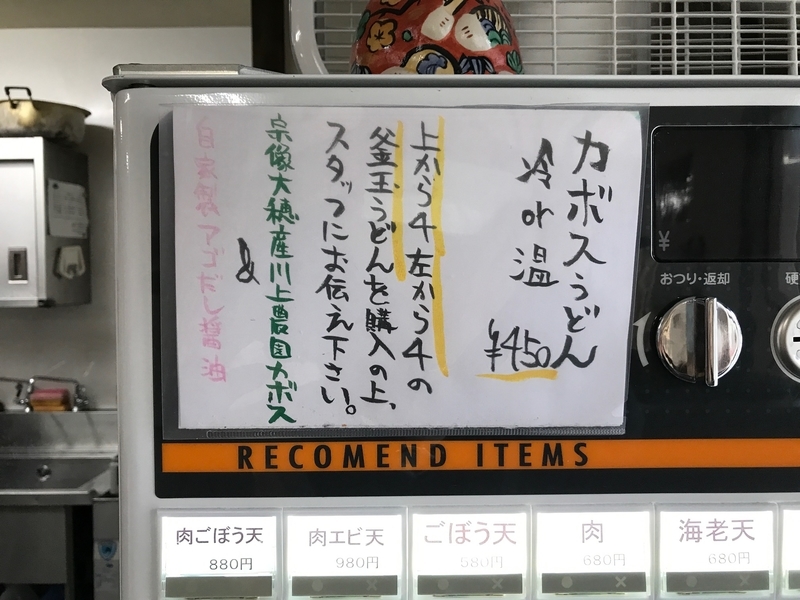 カボスうどん
冷 or 温
¥450
上から4 左から4の
釜玉うどんを購入の上、
スタッフにお伝え下さい。
宗像大穂産川上農園カボス
&
自家製アゴだし醤油
¥
おつり・返却
硬
RECOMEND ITEMS
肉ごぼう天
880円
肉エビ天
980円
ごぼう天
580円
肉
680円
海老天
680円